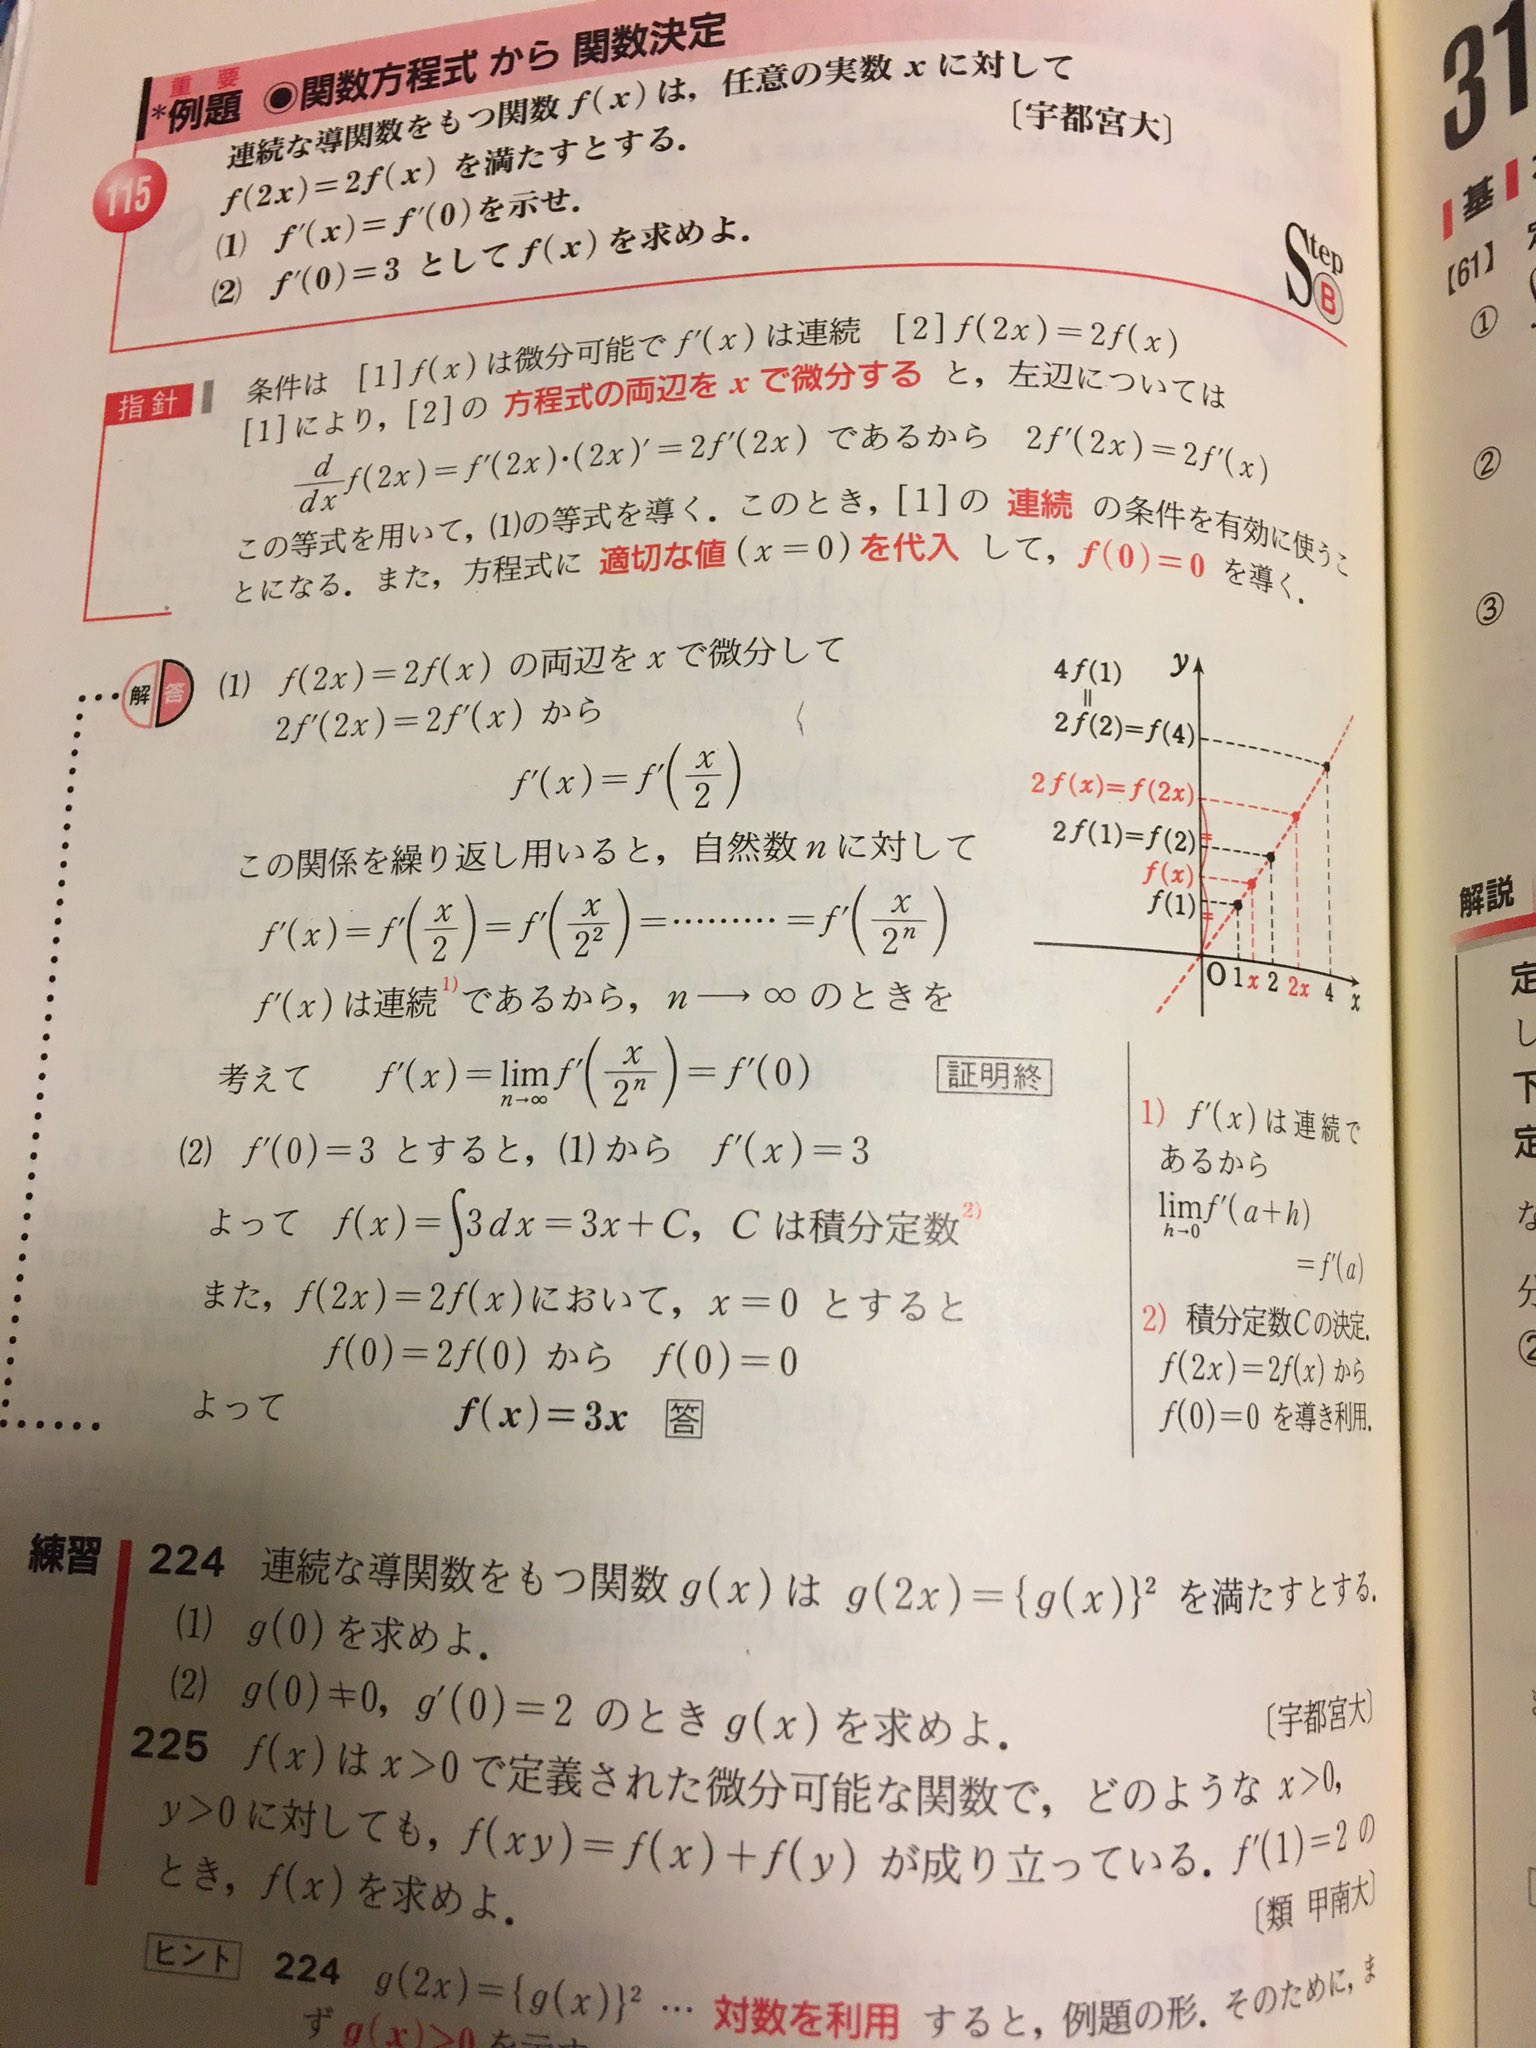 重要
*例題 ◉関数方程式 から 関数決定
115
連続な導関数をもつ関数 f(x) は，任意の実数 x に対して
f(2x)=2f(x) を満たすとする．
〔宇都宮大〕
(1) f′(x)=f′(0)を示せ．
(2) f′(0)=3 として f(x) を求めよ．
Step B
指針
条件は [1] f(x) は微分可能で f′(x) は連続 [2] f(2x)=2f(x)
[1]により，[2]の 方程式の両辺を x で微分する と，左辺については
d/dx f(2x)=f′(2x)・(2x)′=2f′(2x) であるから 2f′(2x)=2f′(x)
この等式を用いて，(1)の等式を導く．このとき，[1]の 連続 の条件を有効に使うこ
とになる．また，方程式に 適切な値(x=0)を代入 して，f(0)=0 を導く．
解答
(1) f(2x)=2f(x) の両辺を x で微分して
2f′(2x)=2f′(x) から
f′(x)=f′(x/2)
この関係を繰り返し用いると，自然数 n に対して
f′(x)=f′(x/2)=f′(x/2²)=………=f′(x/2ⁿ)
f′(x) は連続1)であるから，n→∞ のときを
考えて f′(x)=lim n→∞ f′(x/2ⁿ)=f′(0) 証明終
(2) f′(0)=3 とすると，(1)から f′(x)=3
よって f(x)=∫3dx=3x+C，C は積分定数2)
また，f(2x)=2f(x)において，x=0 とすると
f(0)=2f(0) から f(0)=0
よって f(x)=3x 答
4f(1)
‖
2f(2)=f(4)
2f(x)=f(2x)
2f(1)=f(2)
f(x)
f(1)
y
O 1 x 2 2x 4 x
1) f′(x) は連続で
あるから
lim h→0 f′(a+h)
=f′(a)
2) 積分定数Cの決定．
f(2x)=2f(x) から
f(0)=0 を導き利用．
練習
224 連続な導関数をもつ関数 g(x) は g(2x)={g(x)}² を満たすとする．
(1) g(0) を求めよ．
(2) g(0)≠0，g′(0)=2 のとき g(x) を求めよ．
〔宇都宮大〕
225 f(x) は x>0 で定義された微分可能な関数で，どのような x>0，
y>0 に対しても，f(xy)=f(x)+f(y) が成り立っている．f′(1)=2 の
とき，f(x) を求めよ．
〔類 甲南大〕
ヒント 224 g(2x)={g(x)}² … 対数を利用 すると，例題の形．そのために，ま
ず g(x)>0 を示す
31
基
【61】
①
②
③
解説
定
し
下
定
な
分
②